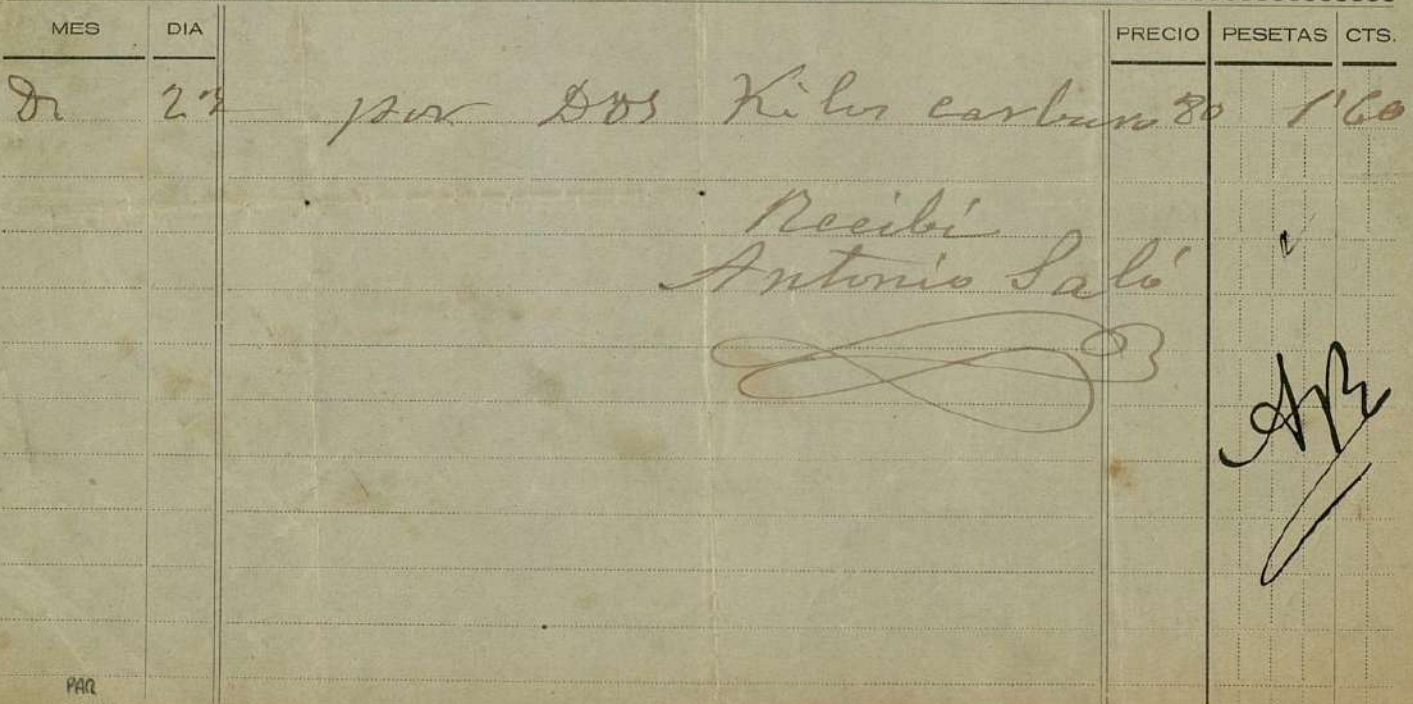 MES DIA PRECIO PESETAS CTS.
por Dos Kilos carburo 80 1'60
Recibí
Antonio Saló
PAR